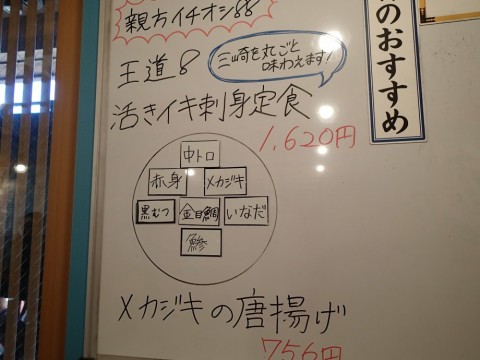 親方イチオシ!!
王道!!
三崎を丸ごと
味わえます!
活きイキ刺身定食
1,620円
中トロ
赤身 メカジキ
黒むつ 金目鯛 いなだ
鯵
メカジキの唐揚げ
756円
のおすすめ